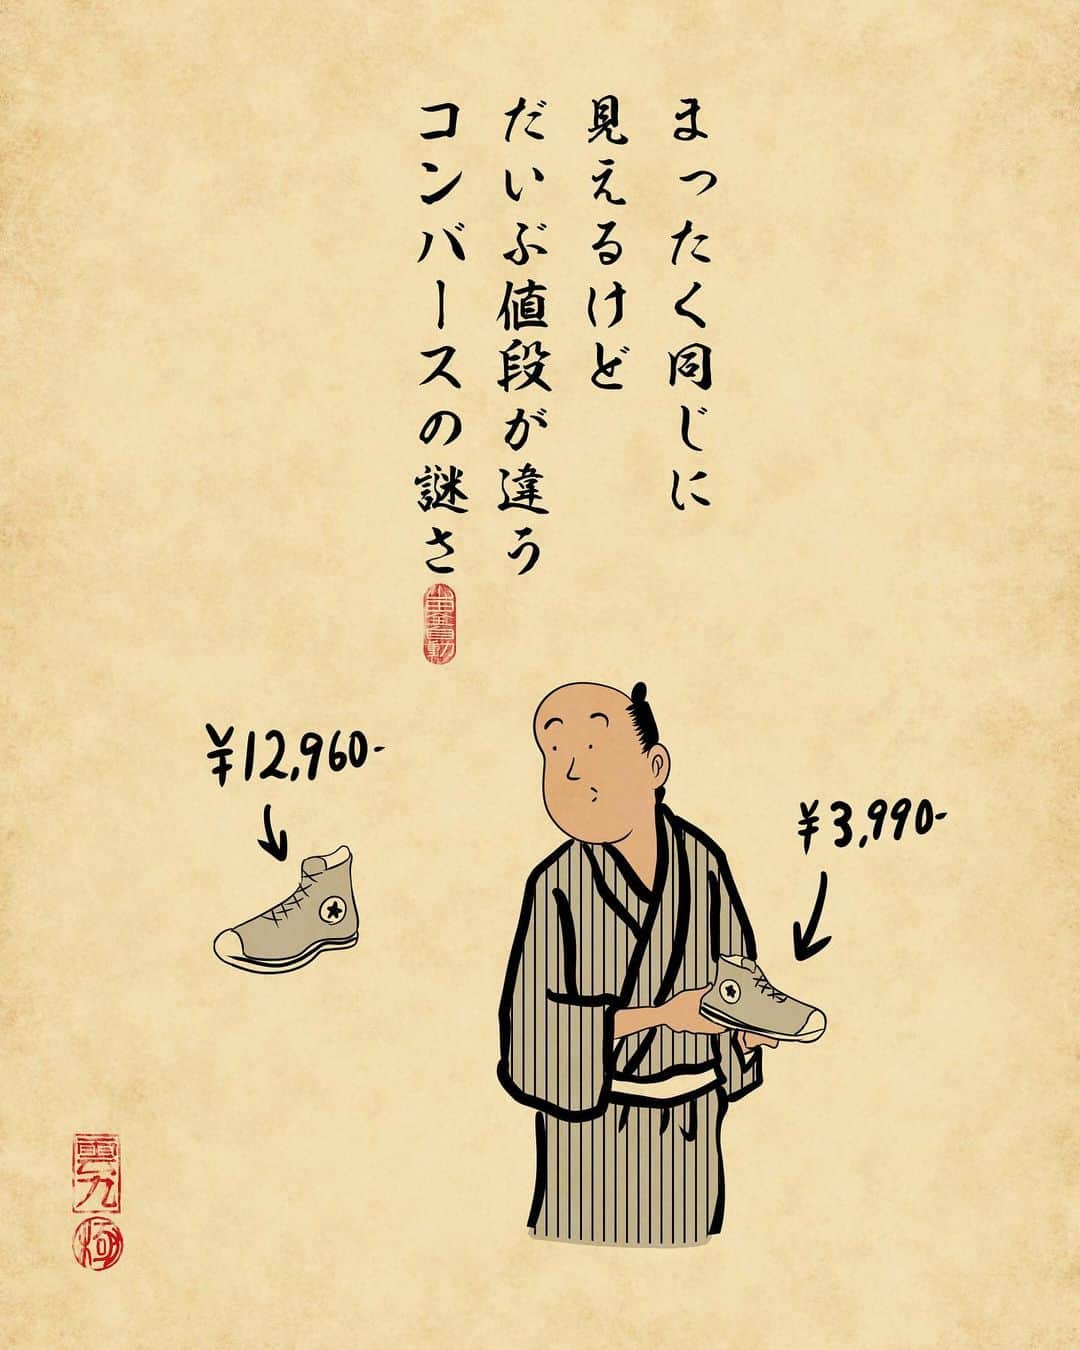 まったく同じに
見えるけど
だいぶ値段が違う
コンバースの謎さ
¥12,960-
¥3,990-